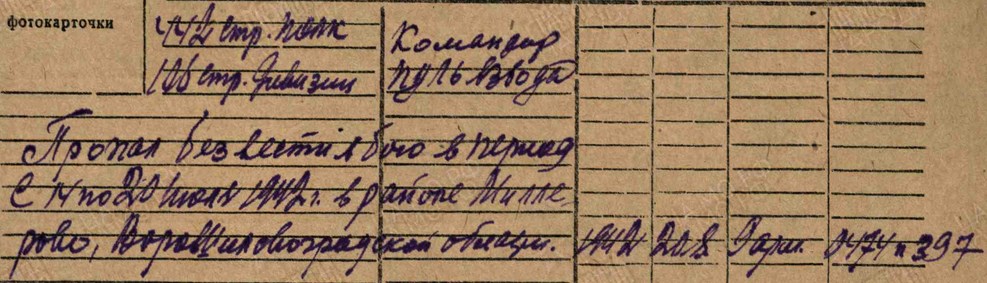 фотокарточки
442 стр. полк
Командир
106 стр. дивизии
пульвзвода
Пропал без вести в бою в период
с 14 по 20 июля 1942 г. в районе Милле
рово, Ворошиловоградской области.
1942 20.8 9 арм. 0474 п 397